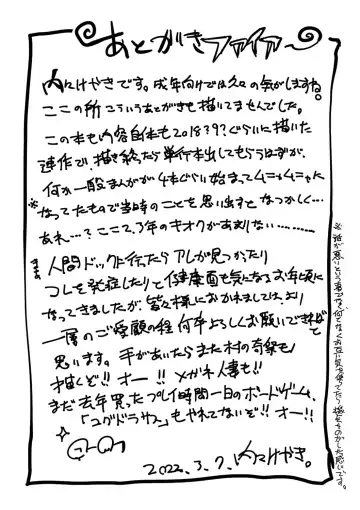 あとがきファイアー
内々けやきです。成年向けでは久々の気がしますね。
ここの所こういうあとがきも描いてませんでした。
この本も内容自体も2018???ぐらいに描いた
連作で、描き終ったら単行本出してもらうはずが、
何か一般まんがが4本ぐらい始まってムニャムニャに
※なってたもので当時のことを思い出すとなつかしく…
あれ…?ここ2、3年のキオクがあまりない………
人間ドックに行ったらアレが見つかったり
コレを発症したりと健康面も気になるお年頃に
なってきましたが、皆々様におかれましては、より
一層のご愛顧の程何卒よろしくお願いできればと
思います。手があいたらまた村の奇祭も
描くぞ!!オー!!メガネ人妻も!!
まだ去年買ったプレイ時間一日のボードゲーム、
「ユグドラサス」もやれてないぞ!!オー!!
2022.3.7.内々けやき。